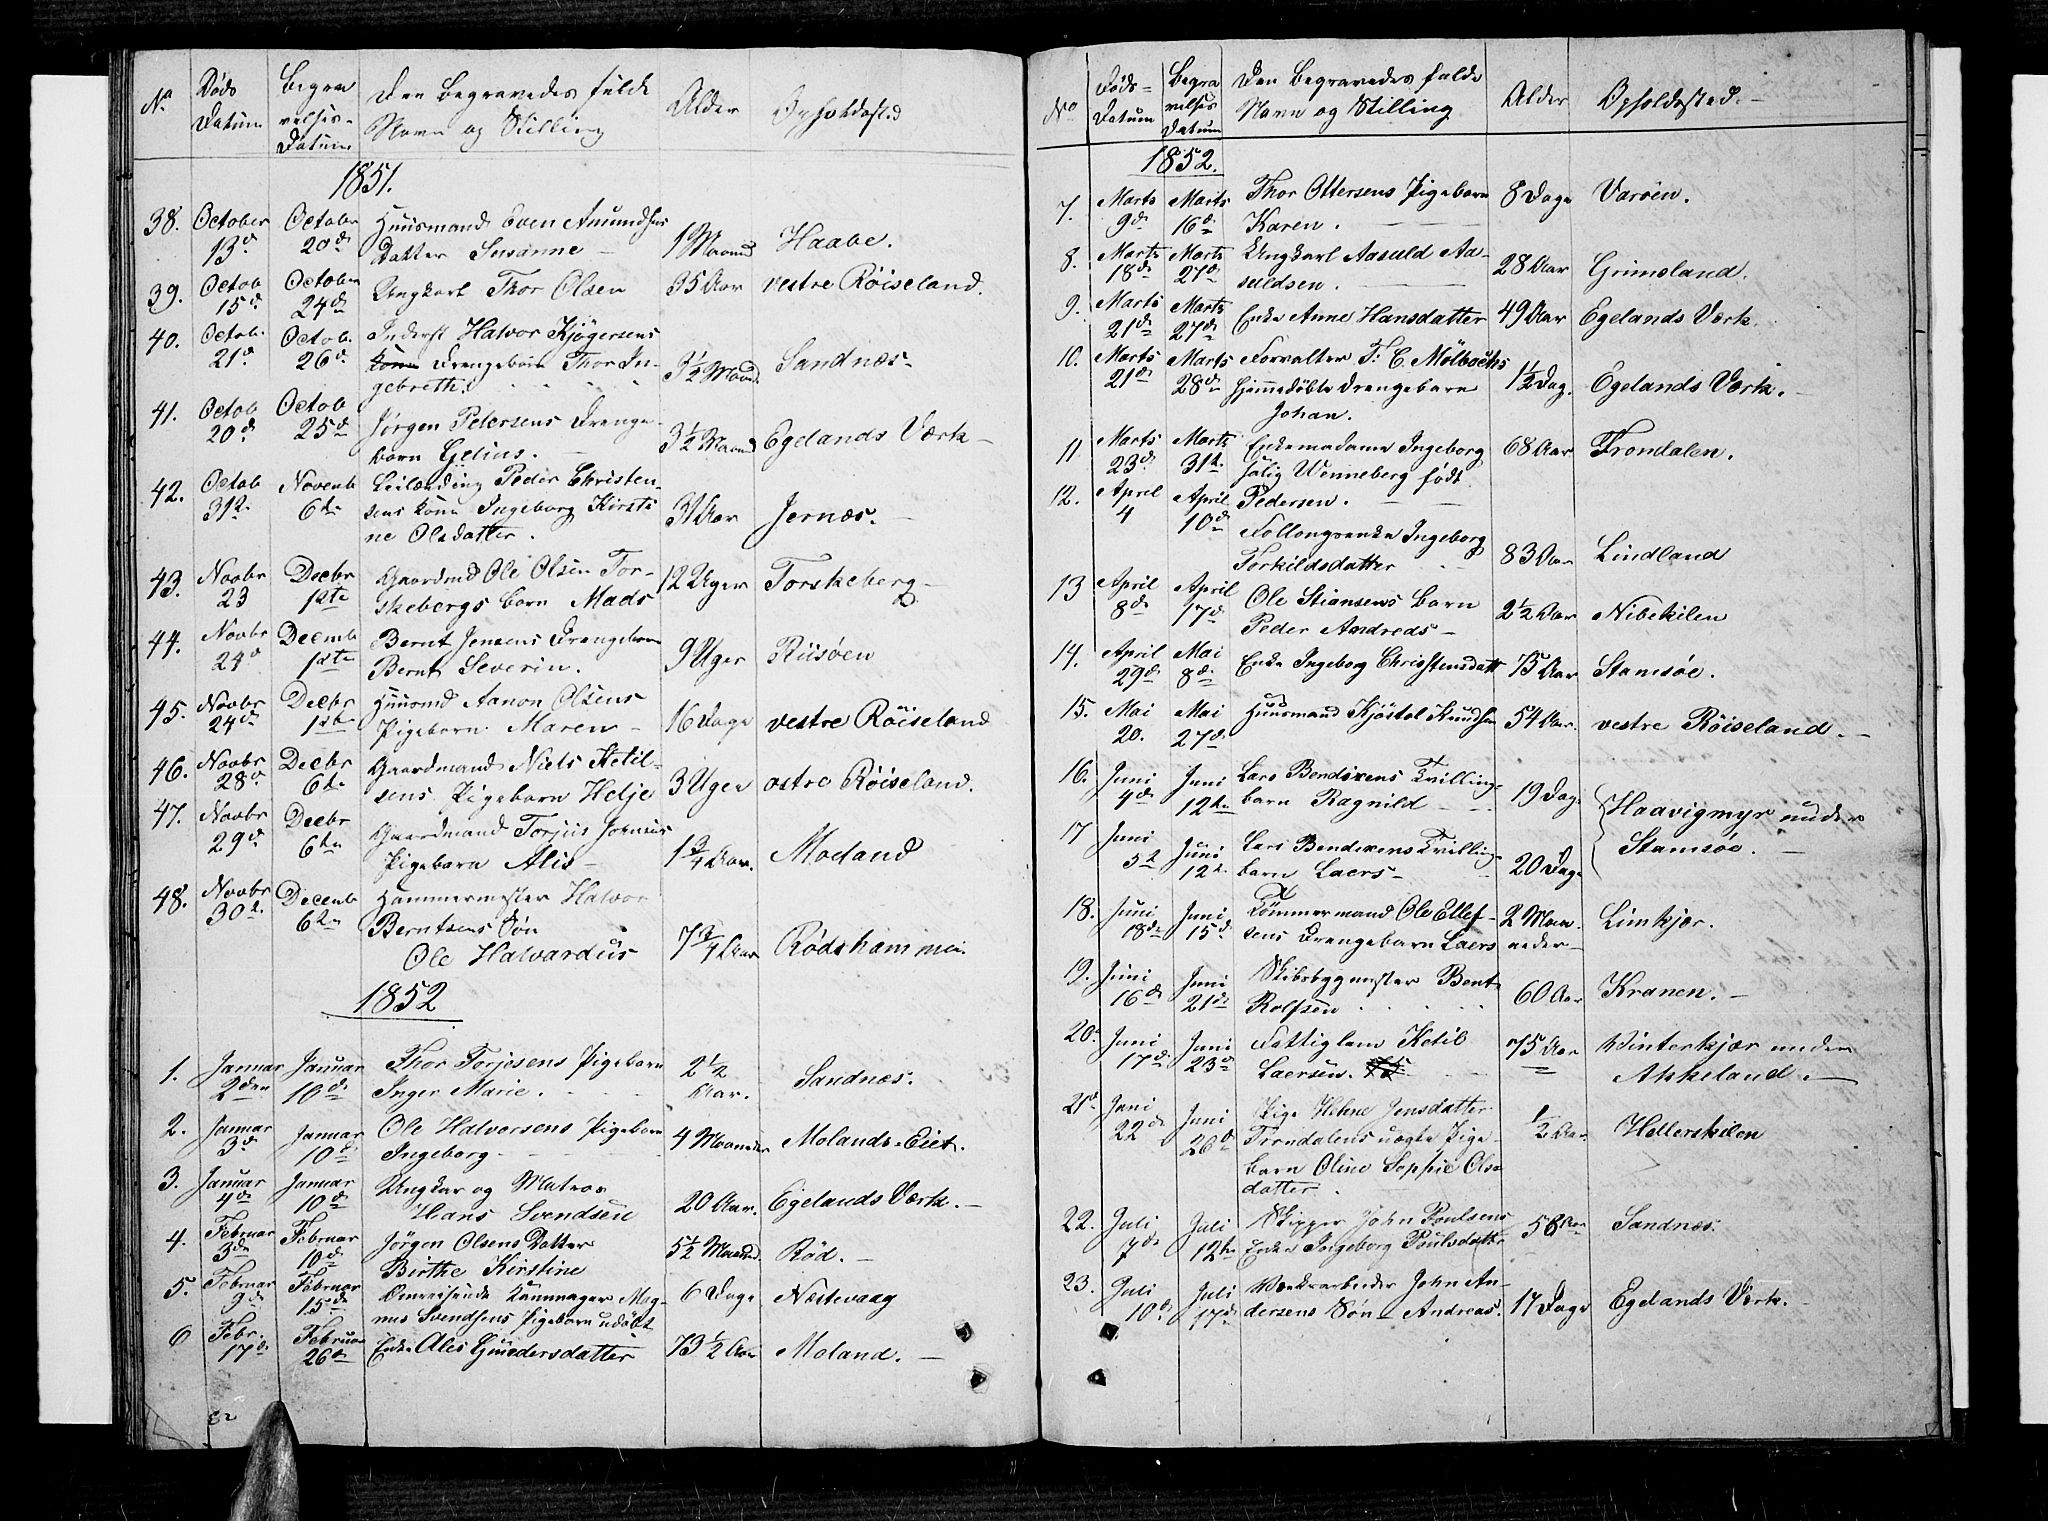 No Døds Datum Begravelses-Datum Den Begravedes fulde Navn og Stilling Alder Opholdssted
1851.
38. October 13d October 20d Huusmand Even Amundsens
Datter Susanne – 1 Maaned Haabe.
39. Octob 15d October 24d Ungkarl Thor Olsen 35 Aar vestre Röiseland.
40. Octob. 21d Octob. 26d Inderst Halvor Kjøgersens
Drengebarn Thor In-
gebreth. 3½ Maaned Sandnæs-
41. Octob 20d Octob 25d Jørgen Petersens Drenge-
barn Gelius. 3½ Maaned Egelands Værk –
42. Octob 31te Novemb 6te Leilænding Peder Christen-
sens Kone Ingeborg Kirsti-
ne Olsdatter. 31 Aar Jernæs. –
43. Novbr 23 Decbr 1ste Gaardmd Ole Olsen Tor-
skebergs barn Mads 12 Uger Torskeberg-
44. Novbr 24d Decemb 1ste Bernt Jensens Drengebarn
Bernt Severin. 9 Uger Riisöen
45. Novbr 24de Decbr 1ste Huusmd Aanon Olsens
Pigebarn Maren – 16 Dage vestre Röiseland
46. Novbr 28d Decbr 6te Gaardmand Niels Ketil-
sens Pigebarn Helje 3 Uger østre Röiseland.
47. Novbr 29d Decbr 6te Gaardmand Torjus Jensens
Pigebarn Alis – 1¾ Aar. Moland
48. Novbr 30te Decemb 6te Hammermester Halvor
Berntsens Søn
Ole Halvardus 7¾ Aar Rødshammer.
1852
1. Januar 2den Januar 10de Thor Torjosens Pigebarn
Inger Marie. 2½ Aar. Sandnæs.
2. Januar 3d Januar 10de Ole Halvorsens Pigebarn
Ingeborg – 4 Maaneder Molands-Eiet.
3. Januar 4de Januar 10de Ungkar og Matros
Hans Svendsen 20 Aar. Egelands Værk. –
4. Februar 3de Februar 10de Jørgen Olsens Datter
Birthe Kirstine 5½ Maaned Röd. –
5. Februar 9de Februar 15de Omreisende Kammager Mag-
nus Svendsens Pigebarn udöbt 6 Dage Næstevaag
6 Febr. 17de Februar 26de Enke Ales Gundersdatter 73½ Aar Moland. –
No Døds-Datum Begravelses Datum Den Begravedes fulde Navn og Stilling Alder Opholdssted. –
1852.
7. Marts 9de Marts 16de Thor Ottersens Pigebarn
Karen. 8 Dage Varöen.
8. Marts 18de Marts 27de Ungkarl Aasuld Aa-
suldsen. 28 Aar Grimeland.
9. Marts 21de Marts 27de Enke Anne Hansdatter 49 Aar Egelands Værk.
10. Marts 21de Marts 28de Forvalter T: C. Mölbachs
hjemmedöbte Drengebarn
Johan. 1½ Dag. Egelands Værk. –
11 Marts 23de Marts 31te Enkemadame Ingeborg
salig Wenneberg født
Pedersen. 68 Aar Trondalen.
12. April 4 April 10de Follougsenke Ingeborg
Torkildsdatter 83 Aar Lindland
13 April 8de April 17de Ole Stiansens barn
Peder Andreas – 2½ Aar Nibekilen
14. April 29de Mai 8de Enke Ingeborg Christensdatt 75 Aar Stamsöe.
15. Mai 20. Mai 27de Huusmand Kjöstol Knudsen 54 Aar. vestre Röiseland. –
16. Juni 4de Juni 12te Lars Bendixens Tvilling-
barn Ragnild 19 Dage { Haavigmyr under
Stamsöe. –
17 Juni 5te Juni 12te Lars Bendixens Tvilling-
barn Laers – 20 Dage
18. Juni 18de Juni 15de Tömmermand Ole Ellef-
sens Drengebarn Laers 2 Maa-
neder – Limkjær.
19. Juni 16de Juni 21de Skibsbygmester Bent
Rolfsen 60 Aar Kranen. –
20. Juni 17de Juni 23de Fattiglem Ketil
Laersen. 75 Aar Vinterkjær under
Akkeland. –
21de Juni 22de Juni 26de Pige Helene Jensdatter
Trondalens uægte Pige-
barn Oline Sophie Ols-
datter. ½ Aar Hellerskilen
22. Juli 7de Juli 12te Skipper John Poulsens
Enke Ingeborg Poulsdatter 58 Aar Sandnæs.
23. Juli 10de Juli 17de Værksarbeider John An-
dersens Søn Andreas. 17 Dage Egelands Værk. –